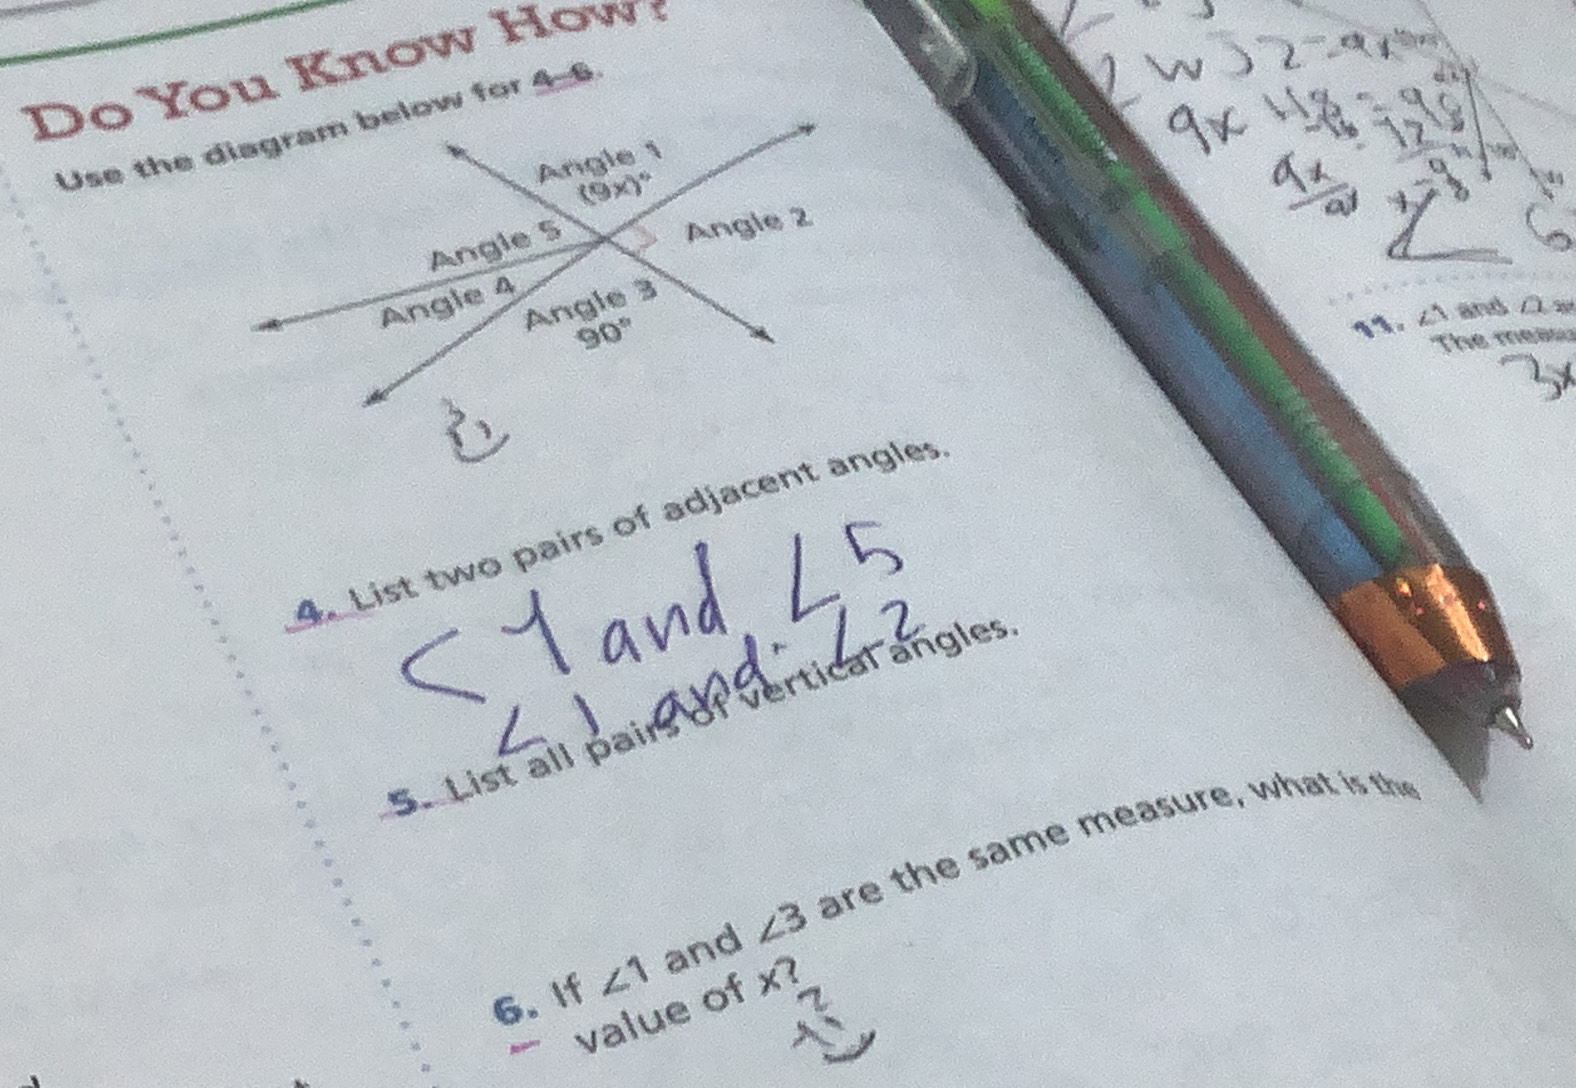 Do You Know How?
Use the diagram below for 4–6.
Angle 1
(9x)°
Angle 5
Angle 2
Angle 4
Angle 3
90°
4. List two pairs of adjacent angles.
<1 and ∠5
∠1 and ∠2
5. List all pairs of vertical angles.
6. If ∠1 and ∠3 are the same measure, what is the
value of x?
9x
9x
11. ∠1 and ∠2
The
3x